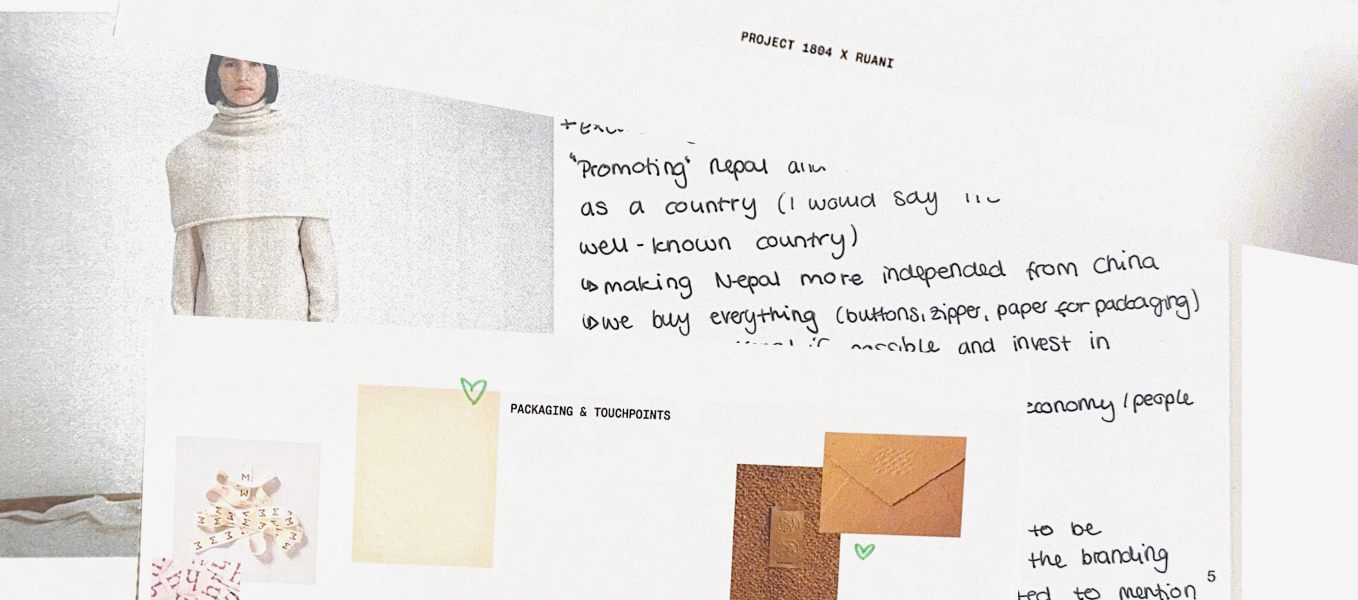 PROJECT 1804 X RUANI
"Promoting" nepal
as a country (I would say
well-known country)
↳ making Nepal more independed from China
↳ we buy everything (buttons, zipper, paper for packaging)
if possible and invest in
PACKAGING & TOUCHPOINTS
economy / people
to be
the branding
to mention
5